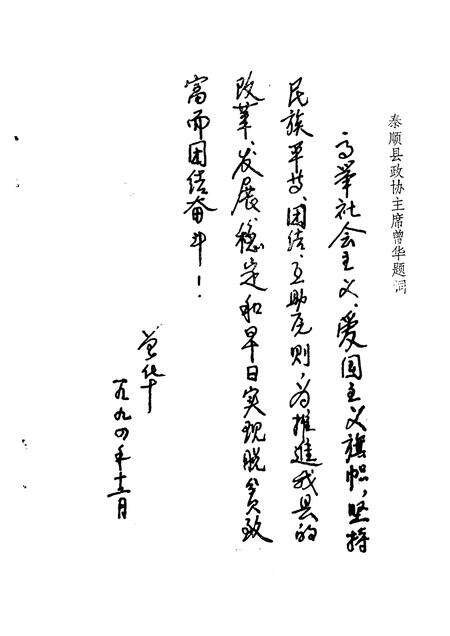 泰顺县政协主席曾华题词
高举社会主义、爱国主义旗帜，坚持
民族平等、团结、互助原则，为推进我县的
改革、发展、稳定和早日实现脱贫致
富而团结奋斗！
曾华
一九九四年十二月